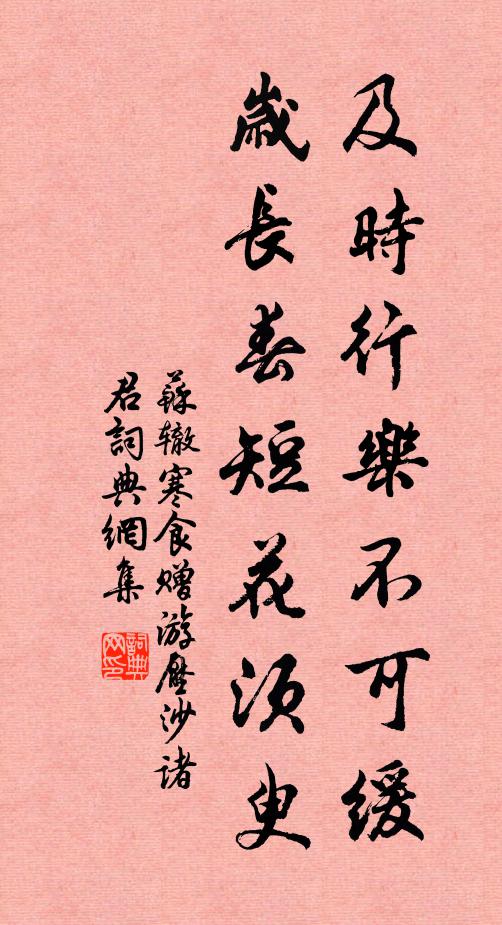 及時行樂不可緩
歲長春短花須臾
蘇轍寒食贈游壓沙諸
君詞典網集
詞典網印